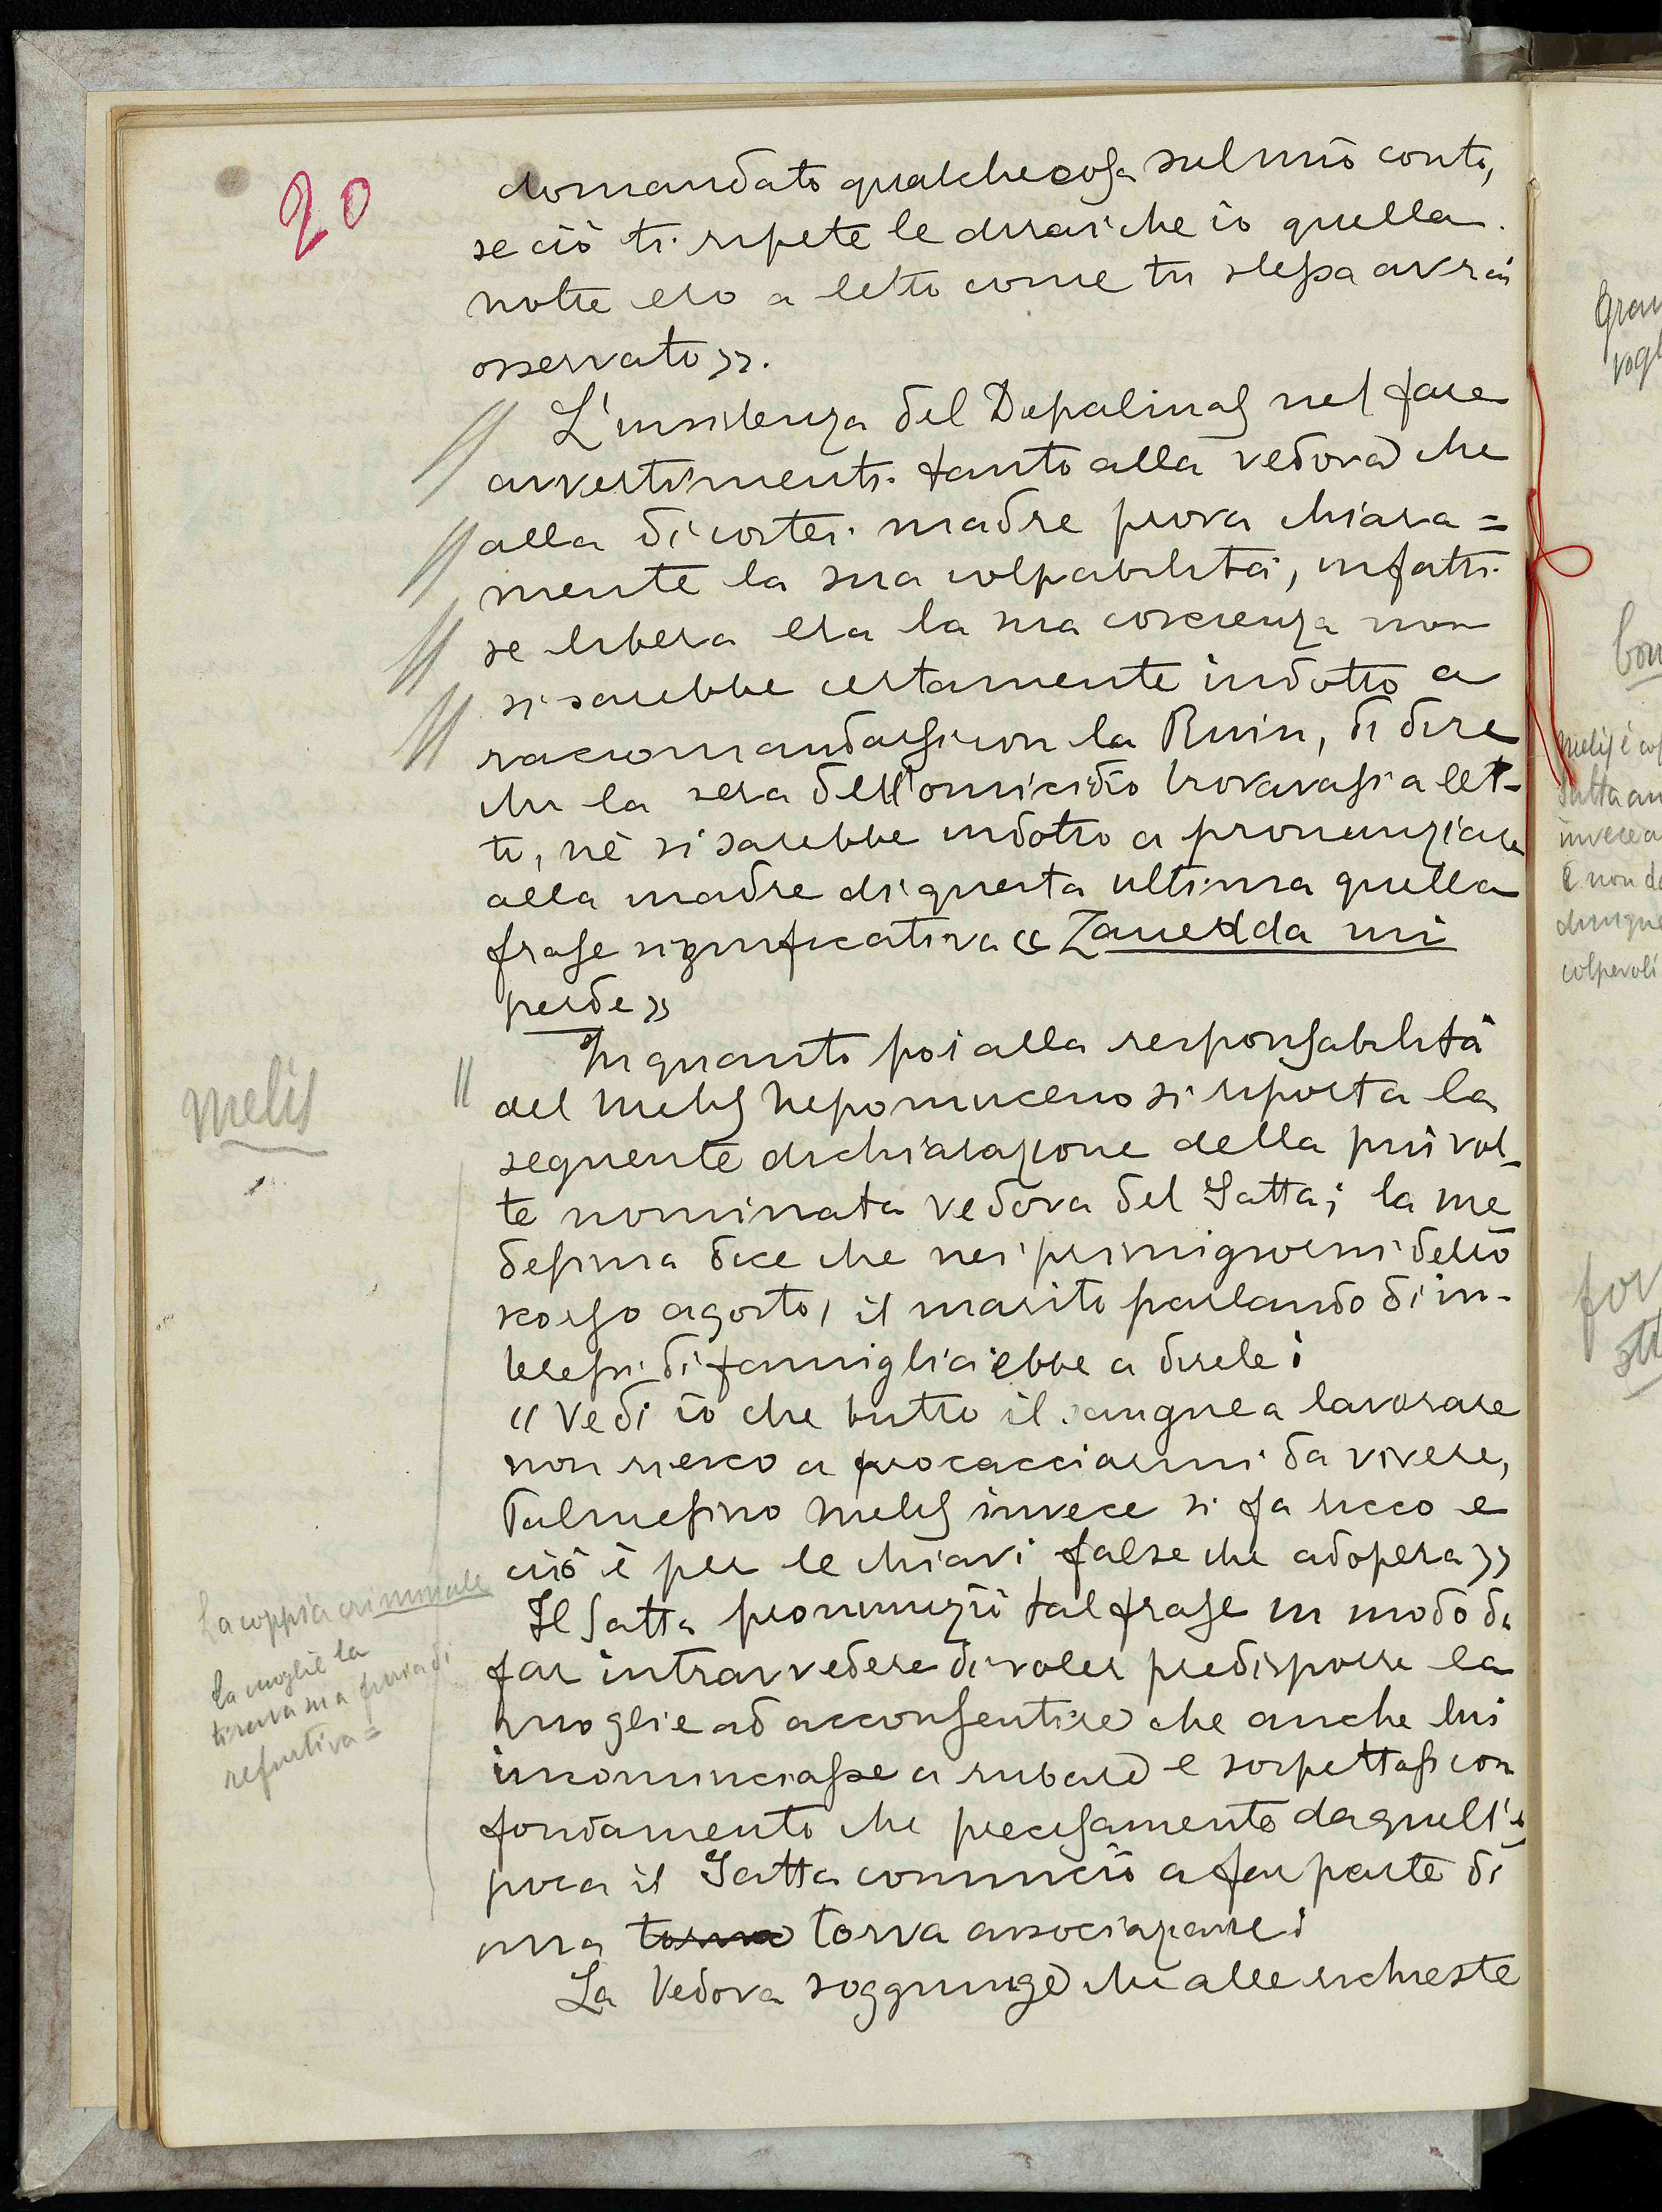 20
domandato qualchecosa sul mio conto,
se ciò ti ripete le dirai che io quella
notte ero a letto come tu stessa avrai
osservato».
L'insistenza del Depalmas nel fare
avvertimenti tanto alla vedova che
alla di costei madre prova chiara=
mente la sua colpabilità, infatti
se libera era la sua coscienza non
si sarebbe certamente indotto a
raccomandarsi con la Ruiu, di dire
che la sera dell'omicidio trovavasi a let-
to, nè si sarebbe indotto a pronunziare
alla madre di questa ultima quella
frase significativa «Zanedda mi
perde»
In quanto poi alla responsabilità
del Melis Nepomuceno si riporta la
seguente dichiarazione della più vol-
te nominata vedova del Satta; la me-
desima dice che nei primi giorni dello
scorso agosto, il marito parlando di in-
teressi di famiglia ebbe a dirle:
«Vedi io che butto il sangue a lavorare
non riesco a procacciarmi da vivere,
Palmesino Melis invece si fa ricco e
ciò è per le chiavi false che adopera»
Il Satta pronunziò tal frase in modo da
far intravvedere di voler predisporre la
moglie ad acconsentire che anche lui
incominciasse a rubare e sospettasi con
fondamento che precisamente da quell'e-
poca il Satta cominciò a far parte di
una torva associazione.
La Vedova soggiunge che alle richieste
Melis
La coppia criminale
la moglie la
tirava su a furia di
refurtiva=
Melis è
Satta
invece
E non
dunque
colpevoli